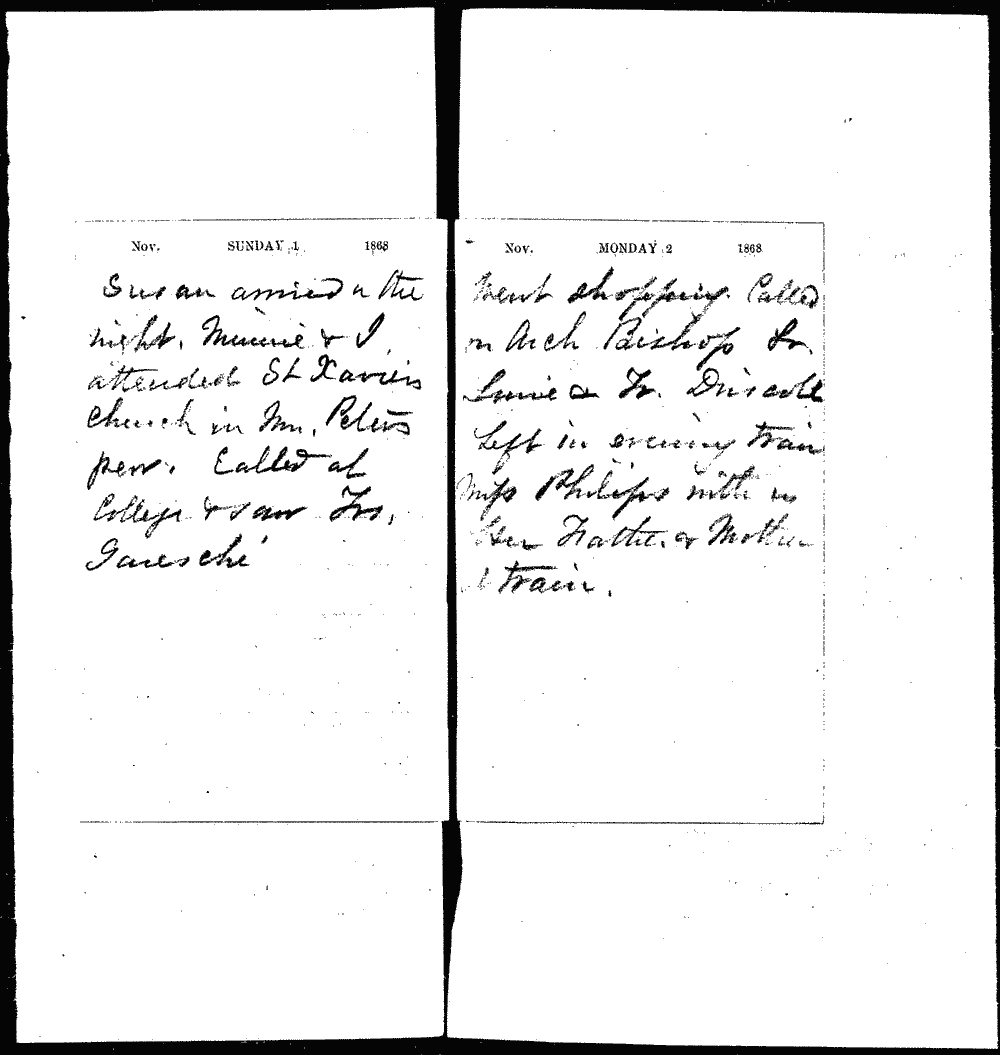 Nov. SUNDAY 1 1868
Susan arrived in the
night. Minnie & I
attended St Xaviers
church in Mr. Peters
pew. Called at
College & saw Frs.
Garesché
Nov. MONDAY 2 1868
Went shopping. Called
on Arch Bishop Fr.
& Fr. Driscoll
Left in evening train
Miss Philips with us
Her Father & Mother
train.